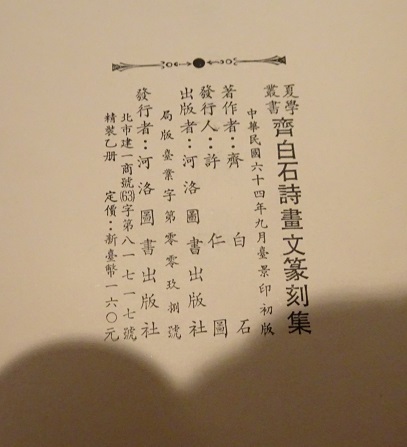 夏學叢書 齊白石詩畫文篆刻集
中華民國六十四年九月臺景印初版
著作者：齊白石
發行人：許仁圖
出版者：河洛圖書出版社
局版臺業字第零零玖捌號
發行者：河洛圖書出版社
北市建一商號(63)字第八一七一七號
精裝乙册 定價：新臺幣一六〇元